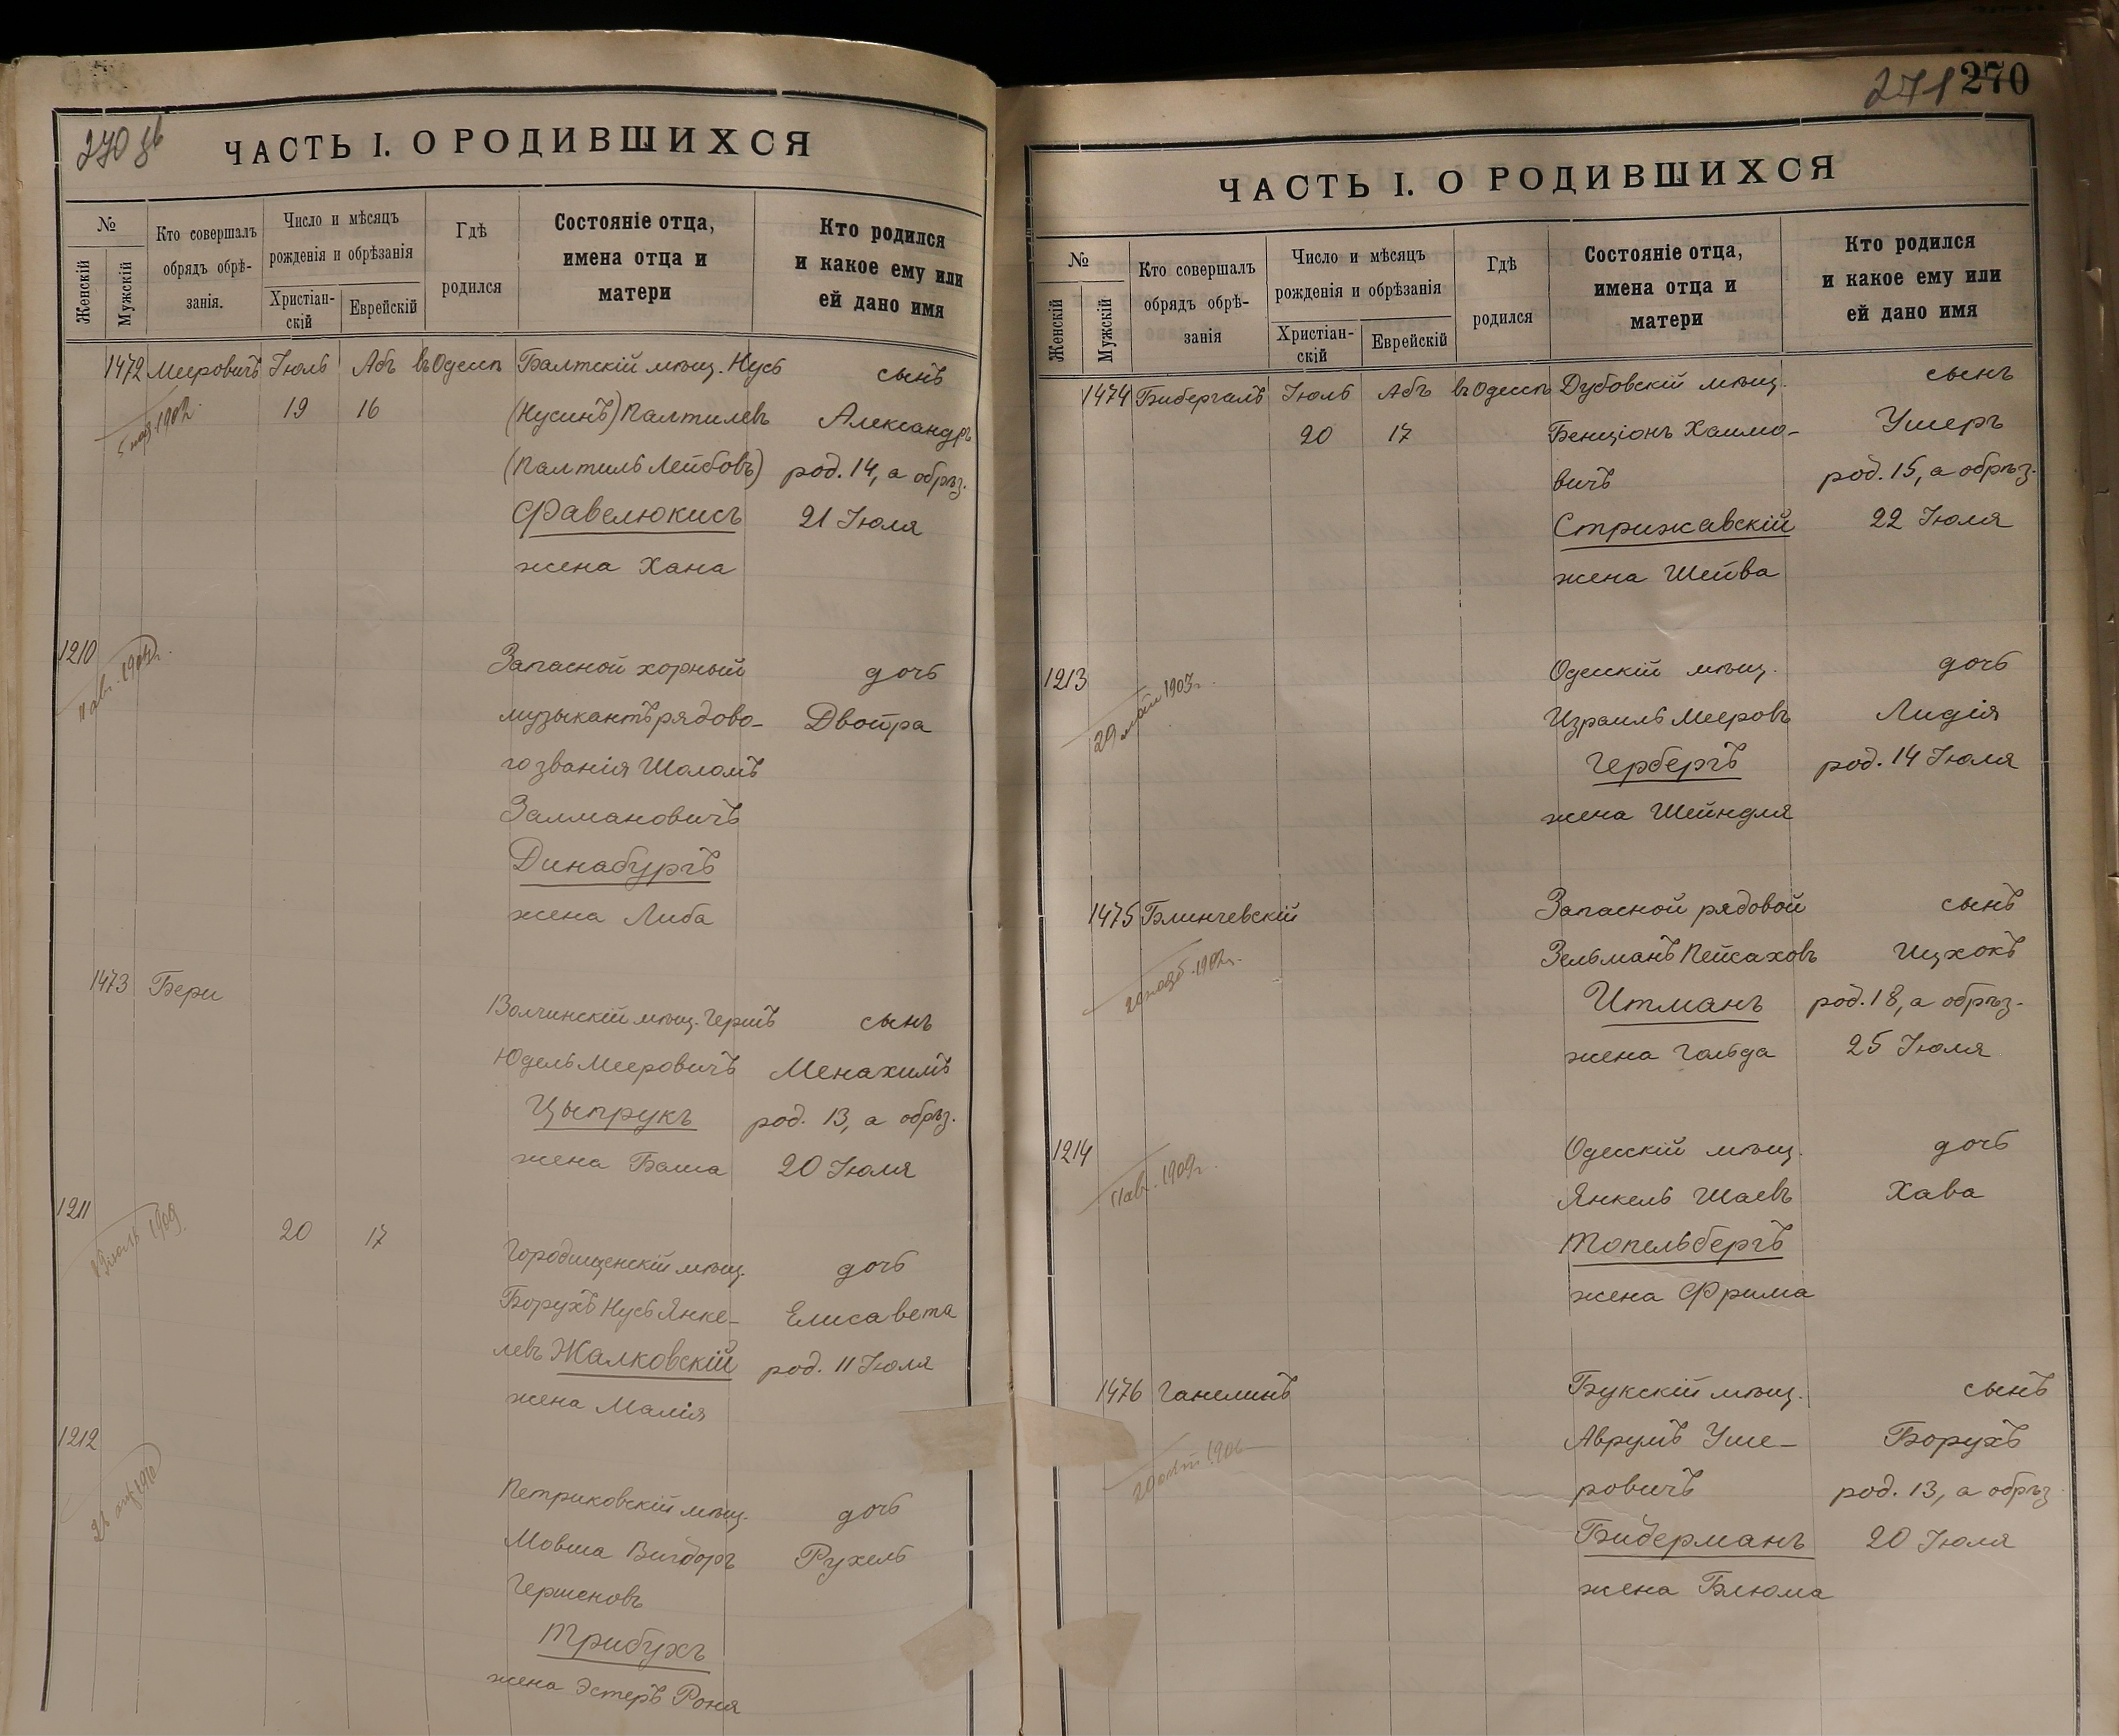 270 об
ЧАСТЬ I. О РОДИВШИХСЯ
№
Женскій
Мужскій
Кто совершалъ
обрядъ обрѣ-
занія.
Число и мѣсяцъ
рожденія и обрѣзанія
Христіан-
скій
Еврейскій
Гдѣ
родился
Состояніе отца,
имена отца и
матери
Кто родился
и какое ему или
ей дано имя
1472 Мееровичъ Іюль Абъ въ Одессѣ Балтскій мѣщ. Нусь сынъ
1902 19 16 (Нусинъ) Палтилевъ Александръ
(Палтиль Лейбовъ) род. 14, а обрѣз.
Фавелюкисъ 21 Іюля
жена Хана
1210 Запасной хорный дочь
11 авг. музыкантъ рядово- Двойра
го званія Шоломъ
Залмановичъ
Динабургъ
жена Либа
1473 Бери Волчинскій мѣщ. Гершъ сынъ
Юдель Мееровичъ Менахимъ
Цыпрукъ род. 13, а обрѣз.
жена Баша 20 Іюля
1211 20 17 Городищенскій мѣщ. дочь
1909 Борухъ Нусь Янке- Елисавета
левъ Жалковскій род. 11 Іюля
жена Малія
1212 Петриковскій мѣщ. дочь
1910 Мовша Вигдоръ Рухель
Гершоновъ
Трибухъ
жена Эстеръ Роня
271 270
ЧАСТЬ I. О РОДИВШИХСЯ
№
Женскій
Мужскій
Кто совершалъ
обрядъ обрѣ-
занія
Число и мѣсяцъ
рожденія и обрѣзанія
Христіан-
скій
Еврейскій
Гдѣ
родился
Состояніе отца,
имена отца и
матери
Кто родился
и какое ему или
ей дано имя
1474 Бибергалъ Іюль Абъ въ Одессѣ Дубовскій мѣщ. сынъ
20 17 Бенціонъ Хаимо- Ушеръ
вичъ род. 15, а обрѣз.
Стрижавскій 22 Іюля
жена Шейва
1213 Одесскій мѣщ. дочь
29 1903 г. Израиль Мееровъ Лидія
Гербергъ род. 14 Іюля
жена Шейндля
1475 Блинчевскій Запасной рядовой сынъ
1902 г. Зельманъ Пейсаховъ Ицхокъ
Итманъ род. 18, а обрѣз.
жена Гольда 25 Іюля
1214 Одесскій мѣщ. дочь
11 авг. 1909 г. Янкель Шаевъ Хава
Топельбергъ
жена Фрима
1476 Ганелинъ Букскій мѣщ. сынъ
20 Аврумъ Уше- Борухъ
ровичъ род. 13, а обрѣз.
Бидерманъ 20 Іюля
жена Блюма